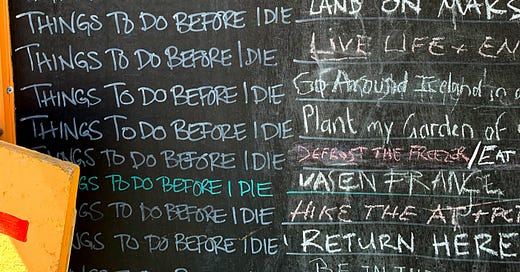 THINGS TO DO BEFORE I DIE LAND ON MARS
THINGS TO DO BEFORE I DIE LIVE LIFE + EN
THINGS TO DO BEFORE I DIE Go Around Iceland in a
THINGS TO DO BEFORE I DIE Plant my Garden of
THINGS TO DO BEFORE I DIE DEFROST THE FREEZER/EAT
GS TO DO BEFORE I DIE VASEN FRANCE
NGS TO DO BEFORE I DIE HIKE THE AT + PC
NGS TO DO BEFORE I DIE RETURN HERE
BE IN